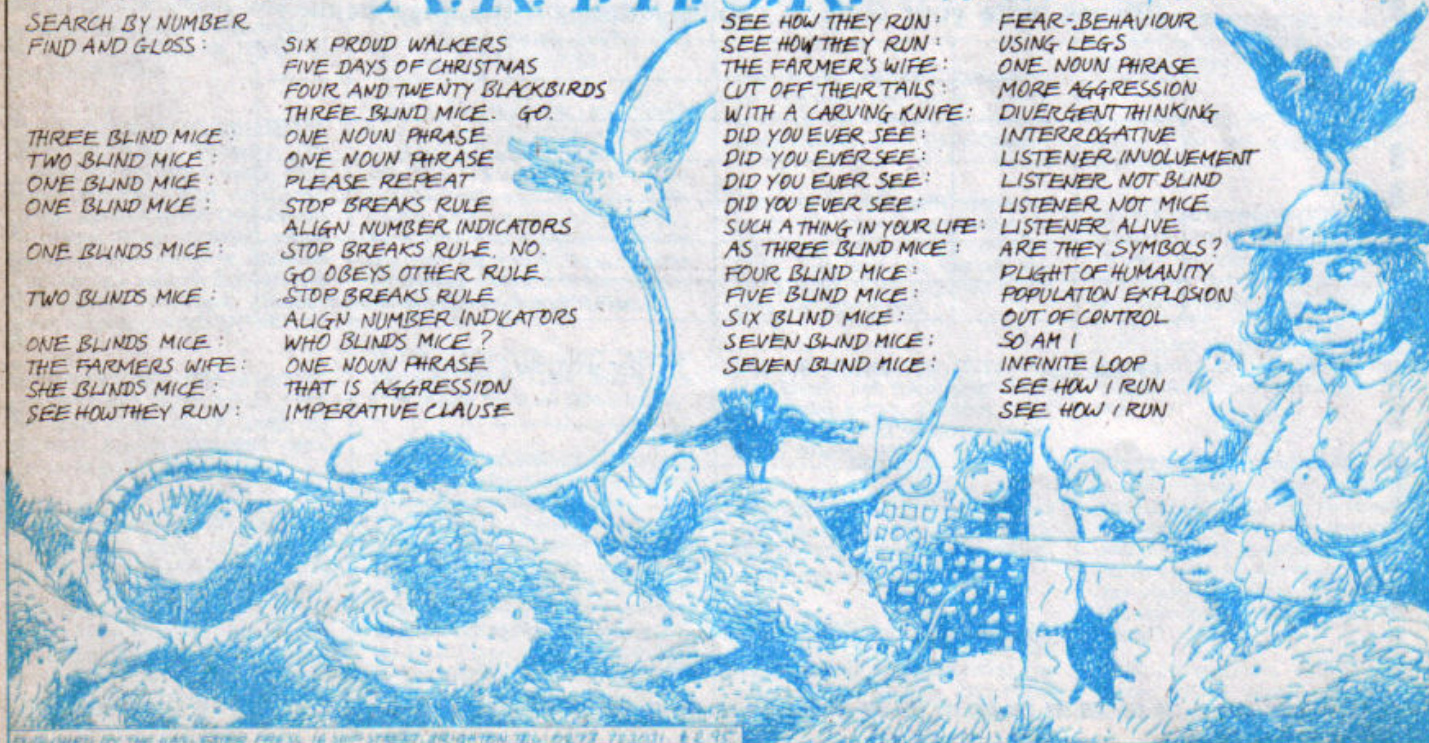 SEARCH BY NUMBER
FIND AND GLOSS: SIX PROUD WALKERS
FIVE DAYS OF CHRISTMAS
FOUR AND TWENTY BLACKBIRDS
THREE BLIND MICE. GO.
THREE BLIND MICE: ONE NOUN PHRASE
TWO BLIND MICE: ONE NOUN PHRASE
ONE BLIND MICE: PLEASE REPEAT
ONE BLIND MICE: STOP BREAKS RULE
ALIGN NUMBER INDICATORS
ONE BLINDS MICE: STOP BREAKS RULE. NO.
GO OBEYS OTHER RULE
TWO BLINDS MICE: STOP BREAKS RULE
ALIGN NUMBER INDICATORS
ONE BLINDS MICE: WHO BLINDS MICE?
THE FARMERS WIFE: ONE NOUN PHRASE
SHE BLINDS MICE: THAT IS AGGRESSION
SEE HOW THEY RUN: IMPERATIVE CLAUSE
SEE HOW THEY RUN: FEAR-BEHAVIOUR
SEE HOW THEY RUN: USING LEGS
THE FARMER'S WIFE: ONE NOUN PHRASE
CUT OFF THEIR TAILS: MORE AGGRESSION
WITH A CARVING KNIFE: DIVERGENT THINKING
DID YOU EVER SEE: INTERROGATIVE
DID YOU EVER SEE: LISTENER INVOLVEMENT
DID YOU EVER SEE: LISTENER NOT BLIND
DID YOU EVER SEE: LISTENER NOT MICE
SUCH A THING IN YOUR LIFE: LISTENER ALIVE
AS THREE BLIND MICE: ARE THEY SYMBOLS?
FOUR BLIND MICE: PLIGHT OF HUMANITY
FIVE BLIND MICE: POPULATION EXPLOSION
SIX BLIND MICE: OUT OF CONTROL
SEVEN BLIND MICE: SO AM I
SEVEN BLIND MICE: INFINITE LOOP
SEE HOW I RUN
SEE HOW I RUN